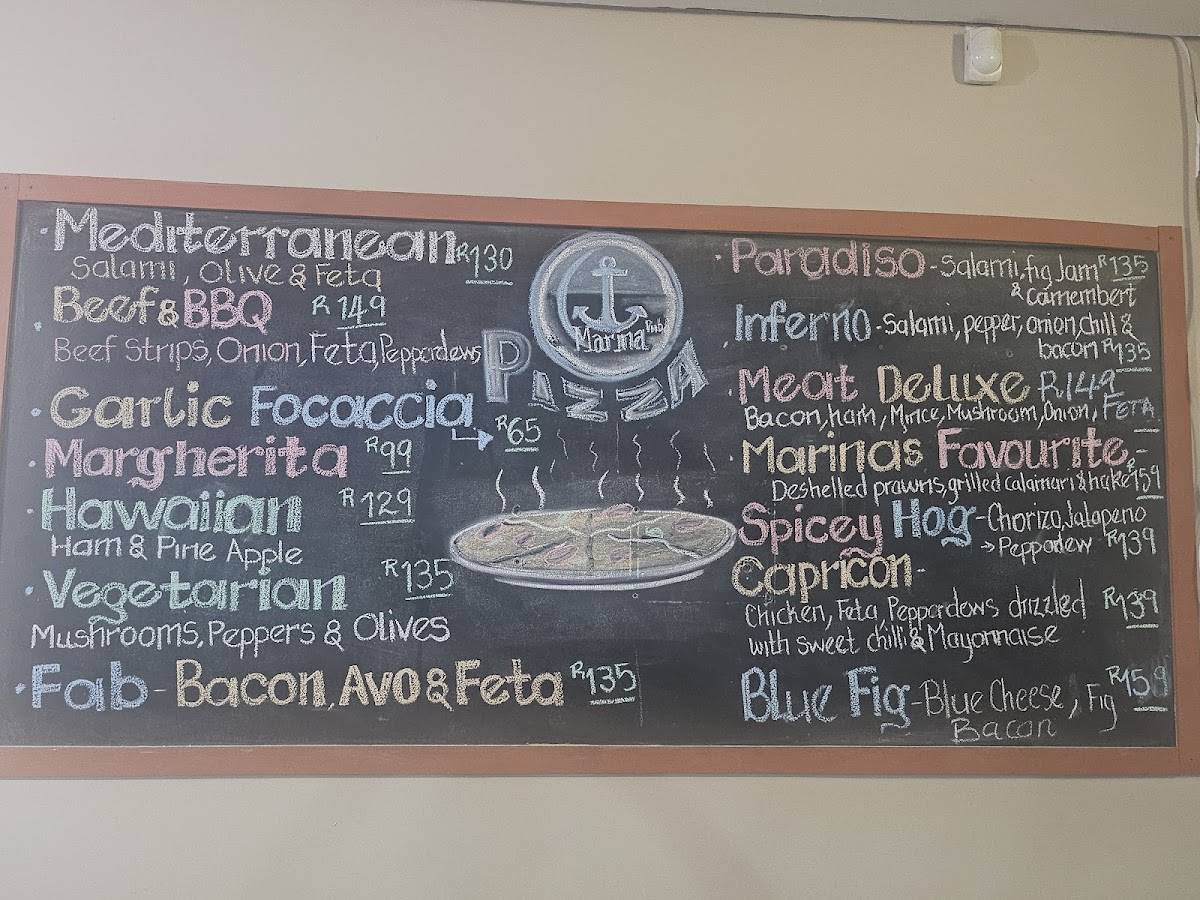 · Mediterranean R130
Salami, Olive & Feta
· Beef & BBQ R149
Beef Strips, Onion, Feta, Peppadews
· Garlic Focaccia R65
· Margherita R99
· Hawaiian R129
Ham & Pine Apple
· Vegetarian R135
Mushrooms, Peppers & Olives
· Fab - Bacon, Avo & Feta R135
Marina
PIZZA
· Paradiso - Salami, fig Jam R135
& Camembert
Inferno - Salami, pepper, onion, chilli &
bacon R135
Meat Deluxe R149
Bacon, ham, Mince, Mushroom, Onion, Feta
Marinas Favourite -
Deshelled prawns, grilled calamari & hake R159
Spicey Hog - Chorizo, Jalapeno
→ Peppadew R139
Capricon -
Chicken, Feta, Peppardews drizzled R139
with sweet chilli & Mayonnaise
Blue Fig - Blue Cheese, Fig R159
Bacon